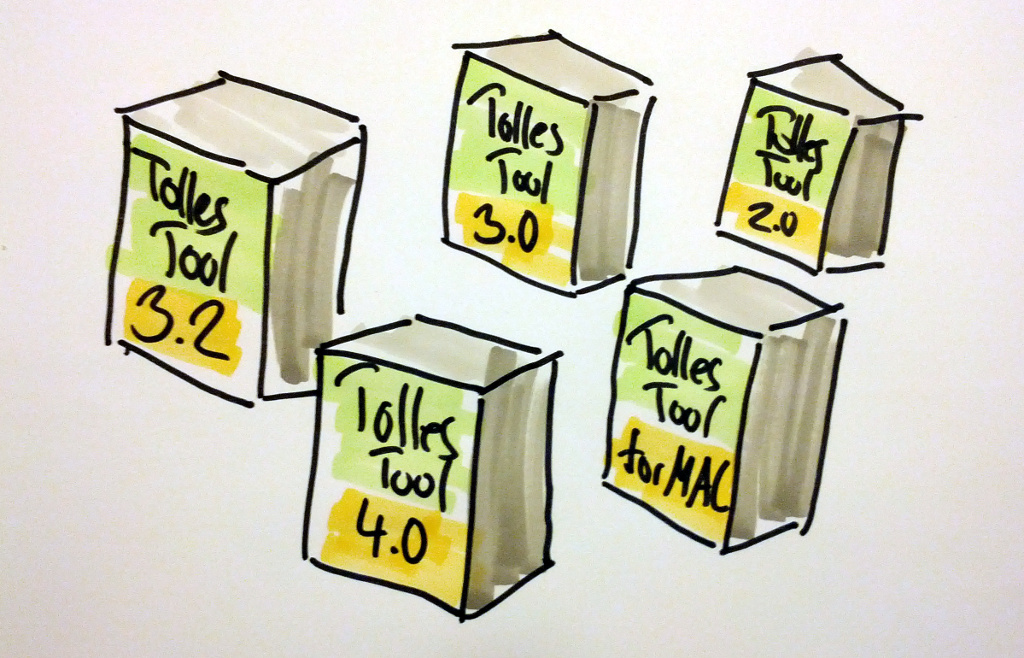 Tolles
Tool
3.2
Tolles
Tool
3.0
Tolles
Tool
2.0
Tolles
Tool
4.0
Tolles
Tool
for MAC